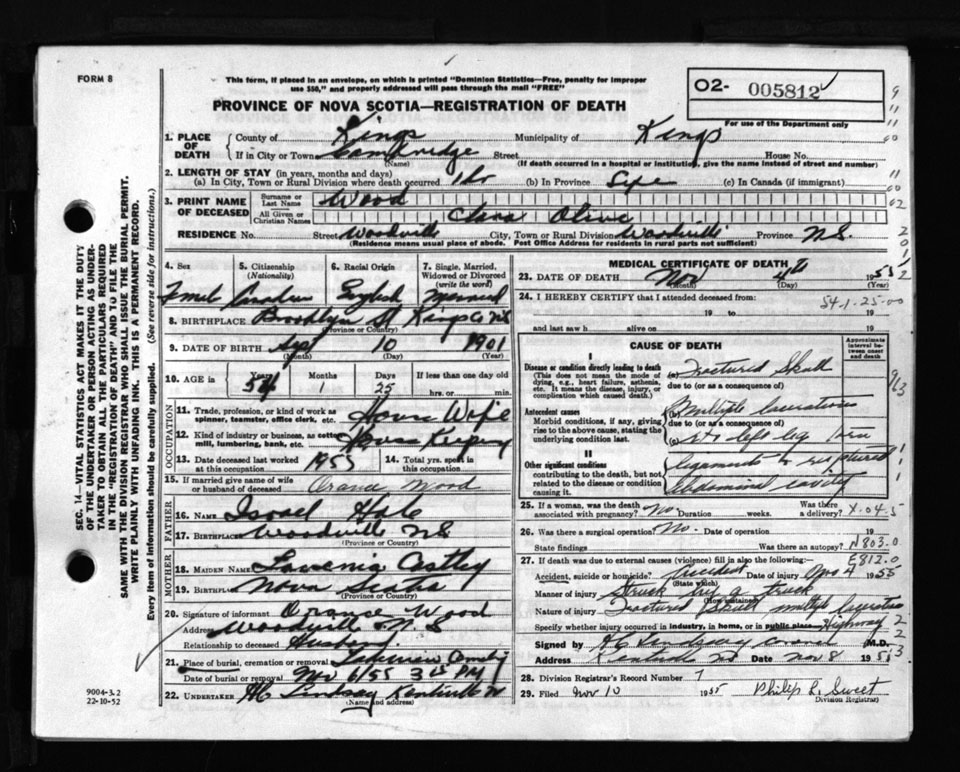 FORM 8
This form, if placed in an envelope, on which is printed "Dominion Statistics—Free, penalty for improper
use $50," and properly addressed will pass through the mail "FREE"
02- 005812
For use of the Department only
PROVINCE OF NOVA SCOTIA—REGISTRATION OF DEATH
1. PLACE OF DEATH County of Kings Municipality of Kings
If in City or Town Cambridge Street House No.
(Name) (If death occurred in a hospital or institution, give the name instead of street and number)
2. LENGTH OF STAY (in years, months and days)
(a) In City, Town or Rural Division where death occurred 1 hr (b) In Province Life (c) In Canada (if immigrant)
3. PRINT NAME OF DECEASED Surname or Last Name Wood
All Given or Christian Names Clara Olive
RESIDENCE No. Street Woodville City, Town or Rural Division Woodville Province N.S.
(Residence means usual place of abode. Post Office Address for residents in rural parts not sufficient)
4. Sex 5. Citizenship (Nationality) 6. Racial Origin 7. Single, Married, Widowed or Divorced (write the word)
English Married
8. BIRTHPLACE Brooklyn St Kings Co NS
(Province or Country)
9. DATE OF BIRTH 10 1901
(Month) (Day) (Year)
10. AGE in Years Months Days If less than one day old
54 1 25 hrs. or min.
OCCUPATION
11. Trade, profession, or kind of work as spinner, teamster, office clerk, etc. House Wife
12. Kind of industry or business, as cotton mill, lumbering, bank, etc. House Keeping
13. Date deceased last worked at this occupation 1955 14. Total yrs. spent in this occupation
15. If married give name of wife or husband of deceased Orance Wood
FATHER
16. Name Israel
17. Birthplace Woodville N.S
(Province or Country)
MOTHER
18. MAIDEN NAME
19. BIRTHPLACE Nova Scotia
(Province or Country)
20. Signature of informant Orance Wood
Address Woodville N.S
Relationship to deceased Husband
21. Place of burial, cremation or removal Lakeview
Date of burial or removal Nov 6/55 3 PM
22. UNDERTAKER Lindsay Kentville
(Name and address)
MEDICAL CERTIFICATE OF DEATH
23. DATE OF DEATH Nov 4th 1955
(Month) (Day)
24. I HEREBY CERTIFY that I attended deceased from: 54-1-25-00
19 to 19
and last saw h alive on 19
CAUSE OF DEATH
Approximate interval between onset and death
I
Disease or condition directly leading to death
(This does not mean the mode of dying, e.g., heart failure, asthenia, etc. It means the disease, injury, or complication which caused death.)
(a) Fractured Skull
due to (or as a consequence of)
Antecedent causes
Morbid conditions, if any, giving rise to the above cause, stating the underlying condition last.
(b) Multiple lacerations
due to (or as a consequence of)
(c) left leg
II
Other significant conditions
contributing to the death, but not related to the disease or condition causing it.
ligaments & ruptured
abdominal cavity
25. If a woman, was the death associated with pregnancy? No Duration weeks. Was there a delivery? X-04.5
26. Was there a surgical operation? No. Date of operation 19
State findings Was there an autopsy? N803.0
27. If death was due to external causes (violence) fill in also the following: E812.0
Accident, suicide or homicide? Accident Date of injury Nov 4 1955
(State which)
Manner of injury Struck by a truck
(How sustained)
Nature of injury Fractured Skull multiple
Specify whether injury occurred in industry, in home, or in public place Highway
Signed by M.D.
Address Kentville NS Date Nov 8 1955
28. Division Registrar's Record Number 7
29. Filed Nov 10 1955 Philip L. Sweet
(Division Registrar)
9004-3.2
22-10-52
SEC. 14—VITAL STATISTICS ACT MAKES IT THE DUTY
OF THE UNDERTAKER OR PERSON ACTING AS UNDER-
TAKER TO OBTAIN ALL THE PARTICULARS REQUIRED
IN THE "REGISTRATION OF DEATH" AND TO FILE THE
SAME WITH THE DIVISION REGISTRAR WHO SHALL ISSUE THE BURIAL PERMIT.
WRITE PLAINLY WITH UNFADING INK. THIS IS A PERMANENT RECORD.
Every item of information should be carefully supplied. (See reverse side for instructions.)